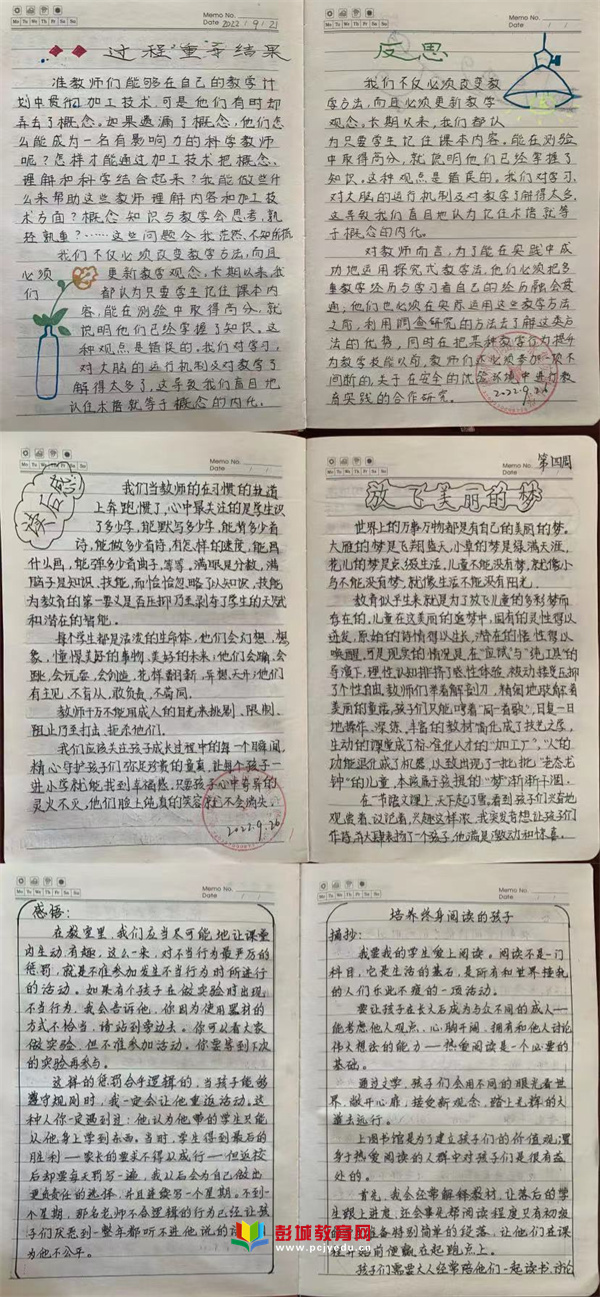 Memo No.
Mo Tu We Th Fr Sa Su
Date 2022 / 9 / 21
过程重于结果
准教师们能够在自己的教学计
划中爱彻加工技术,可是他们有时却
弄丢了概念。如果遗漏了概念,他们怎
么能成为一名有影响力的科学教师
呢?怎样才能通过加工技术把概念、
理解和科学结合起来?我能做些什
么来帮助这些教师理解内容和加工技
术方面?概念知识与教学会思考,孰
轻孰重?……这些问题令我茫然、不知所措
我们不仅必须改变教学方法,而且
必须更新教学观念,长期以来,我
们都认为只要学生记住课本内
容,能在测验中取得高分,就
说明他们已经掌握了知识。这
种观点是错误的。我们对学习,
对大脑的运行机制及对教学了
解得太多了,这导致我们盲目地
认住术语就等于概念的内化。
Memo No.
Mo Tu We Th Fr Sa Su
Date / /
反思
我们不仅必须改变教
学方法,而且必须更新教学
观念,长期以来,我们都认
为只要学生记忆课本内容,能在测验
中取得高分,就说明他们已经掌握了
知识。这种观点是错误的。我们对学习,
对大脑的运行机制及对教学了解得太多,
这导致我们盲目地认为记住术语就等
于概念的内化。
对教师而言,为了能在实践中成
功地运用探究式教学法,他们必须把多
重教学经历与学习者自己的经历融会贯
通,他们也必须在实际运用这些教学方法
之前,利用调查研究的方法去了解这类方
法的优势,同时在把某种教学行为提升
为教学技能以前,教师们还必须参加一项不
间断的,关于在安全的优宓环境中进行教
育实践的合作研究。
2022.9.26
Memo No.
Mo Tu We Th Fr Sa Su
Date / /
读后感
我们当教师的在习惯的轨道
上奔跑惯了,心中最关注的是学生识
了多少字,能默写多少字,能背多少首
诗,能做多少首诗,有怎样的速度,能画
什么画,能弹多少首曲子,等等。满眼是分数,满
脑子是知识、技能,而恰恰忽略了以知识、技能
为教育的第一要义是否压抑乃至剥夺了学生的天赋
和潜在的智能。
每个学生都是活泼的生命体,他们会幻想、想
象,憧憬美好的事物、美好的未来;他们会蹦、会
跳、会玩耍、会创造,花样翻新,异想天开;他们
有主见,不盲从,敢负责,不苟同。
教师千万不能用成人的目光来挑剔、限制、
阻止乃至打击、拒杀他们。
我们应该关注孩子成长过程中的每一个瞬间,
精心守护孩子们弥足珍贵的童真,让每个孩子一
进小学就能感到幸福感,只要孩子心中奇异的
灵火不灭,他们脸上纯真的笑容就不会消失。
2022.9.26
Memo No. 第四周
Mo Tu We Th Fr Sa Su
Date / /
放飞美丽的梦
世界上的万事万物都是有自己的美丽的梦。
大雁的梦是飞翔蓝天,小草的梦是绿满天涯,
花儿的梦是点缀生活。儿童不能没有梦,就像小
鸟不能没有梦,就像生活不能没有阳光。
教育似乎生来就是为了放飞儿童的多彩梦而
存在的。儿童在这美丽的逐梦中,固有的灵性得以
迸发,原始的诗情得以生长,潜在的悟性得以
唤醒。可是现实的情况是在“应试”与“纯工具”的
导演下,理性认知排挤了感性体验,被动接受压抑
了个性自由,教师们举着解剖刀,精确地肢解着
美丽的童话,孩子们只能“唱着”同一首歌”,日复一日
地操作、演练,丰富的教材简化成了技艺之学,
生动的课堂成了标准化人才的“加工厂”,“人”的
功能退化成了机器,以致出现了一批批“老态龙
钟”的儿童,本该属于孩提的“梦”渐渐干涸。
在一节语文课上,天下起了雪,看到孩子们兴奋地
观赏着、议论着,兴趣这样浓,我突发奇想让孩子们
作诗,并大肆表扬了一个孩子,他满是激动和惊喜。
Memo No.
Mo Tu We Th Fr Sa Su
Date / /
感悟:
在教室里,我们应当尽可能地让课堂
内生动有趣,这么一来,对不当行为最严厉的
惩罚,就是不准参加发生不当行为时所进行
的活动。如果有个孩子在做实验时出现
不当行为,我会告诉他,你因为使用器材的
方式不恰当,请站到旁边去。你可以看大家
做实验,但不准参加活动。你要等到下次
的实验再参与。
这样的惩罚合乎逻辑的,当孩子能够
遵守规则时,我一定会让他重返活动。这
种人你一定遇到过:他认为他带的学生只能
从他身上学到东西。当时,学生得到最后的
胜利——家长的要求不得以成行——但返校
后却要每天罚写一遍,我以后会为自己做出
更负责任的选择,并且连续写一个星期。不到一
个星期,那名老师不合逻辑的行为已经让孩
子们厌恶到一整年都听不进他说的话
为他不公平。
Memo No.
Mo Tu We Th Fr Sa Su
Date / /
培养终身阅读的孩子
摘抄:
我要我的学生爱上阅读。阅读不是一门
科目,它是生活的基石,是所有和世界接轨
的人们乐此不疲的一项活动。
要让孩子在长大后成为与众不同的成人——
能考虑他人观点、心胸开阔、拥有和他人讨论
伟大想法的能力——热爱阅读是一个必要的
基础。
通过文学,孩子们会用不同的眼光看世
界,敞开心扉,接受新观念,踏上光辉的大
道去远行。
上图书馆是为了建立孩子们的价值观,置
身于热爱阅读的人群中对孩子们是很有益
处的。
首先,我会经常解释教材,让落后的学
生跟上进度,还会事先帮阅读程度只有初级
准备特别简单的段落,让他们在课
程开始前便赢在起跑点上。
孩子们需要大人经常陪他们一起读书,讨论
彭城教育网
www.pcjyedu.cn